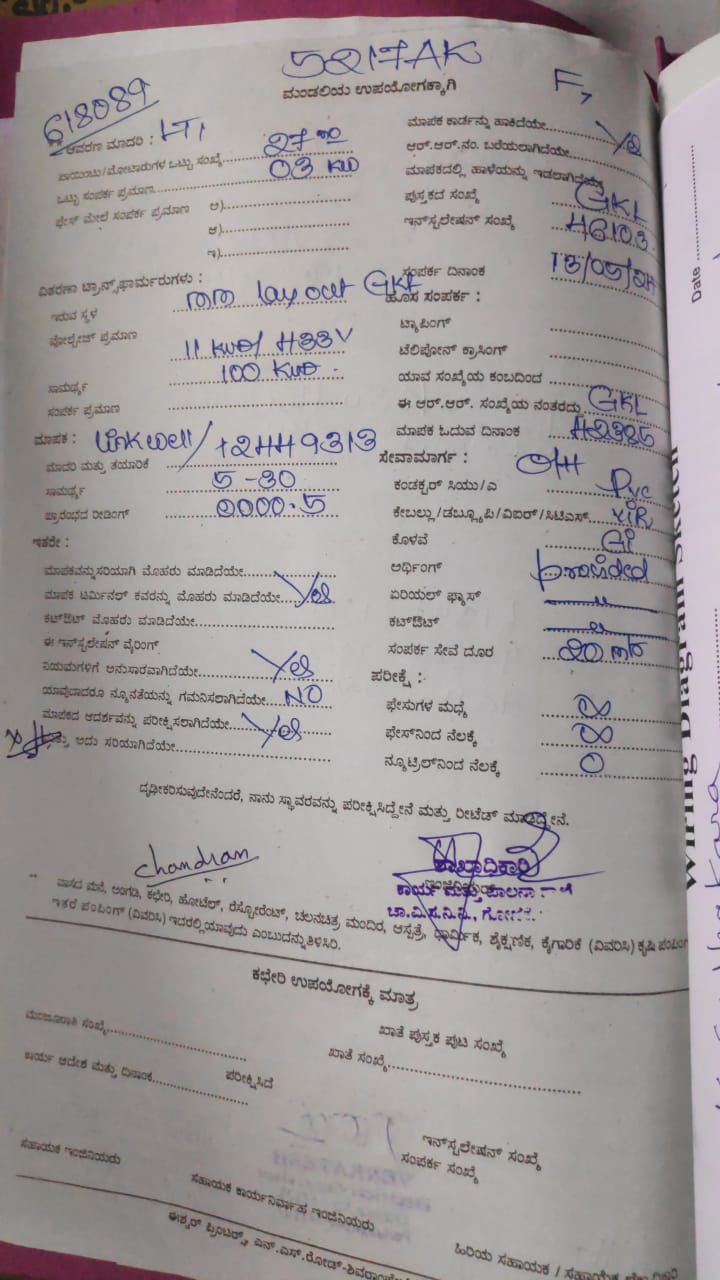 5217AK
F7
ಮಂಡಲಿಯ ಉಪಯೋಗಕ್ಕಾಗಿ
618089
ಆವರಣ ಮಾದರಿ : LT1
ಪಾಯಿಂಟು/ಮೋಟಾರುಗಳ ಒಟ್ಟು ಸಂಖ್ಯೆ 27 no
ಒಟ್ಟು ಸಂಪರ್ಕ ಪ್ರಮಾಣ 03 KW
ಫೇಸ್ ಮೇಲೆ ಸಂಪರ್ಕ ಪ್ರಮಾಣ ಅ)
ಆ)
ಇ)
ವಿತರಣಾ ಟ್ರಾನ್ಸ್‌ಫಾರ್ಮರುಗಳು :
ಇರುವ ಸ್ಥಳ mm layout GKL
ವೋಲ್ಟೇಜ್ ಪ್ರಮಾಣ 433V
ಸಾಮರ್ಥ್ಯ 100
ಸಂಪರ್ಕ ಪ್ರಮಾಣ
ಮಾಪಕ : Linkwell/
ಮಾದರಿ ಮತ್ತು ತಯಾರಿಕೆ
ಸಾಮರ್ಥ್ಯ 5-30
ಪ್ರಾರಂಭದ ರೀಡಿಂಗ್ 0000.5
ಇತರೇ :
ಮಾಪಕವನ್ನು ಸರಿಯಾಗಿ ಮೊಹರು ಮಾಡಿದೆಯೇ
ಮಾಪಕ ಟರ್ಮಿನಲ್ ಕವರನ್ನು ಮೊಹರು ಮಾಡಿದೆಯೇ Yes
ಕಟ್‌ಔಟ್ ಮೊಹರು ಮಾಡಿದೆಯೇ
ಈ ಇನ್‌ಸ್ಟಲೇಷನ್ ವೈರಿಂಗ್
ನಿಯಮಗಳಿಗೆ ಅನುಸಾರವಾಗಿದೆಯೇ Yes
ಯಾವುದಾದರೂ ನ್ಯೂನತೆಯನ್ನು ಗಮನಿಸಲಾಗಿದೆಯೇ NO
ಮಾಪಕದ ಆದರ್ಶವನ್ನು ಪರೀಕ್ಷಿಸಲಾಗಿದೆಯೇ Yes
ಅದು ಸರಿಯಾಗಿದೆಯೇ
ಮಾಪಕ ಕಾರ್ಡನ್ನು ಹಾಕಿದೆಯೇ
ಆರ್.ಆರ್.ನಂ. ಬರೆಯಲಾಗಿದೆಯೇ Yes
ಮಾಪಕದಲ್ಲಿ ಹಾಳೆಯನ್ನು ಇಡಲಾಗಿದೆಯೇ
ಪುಸ್ತಕದ ಸಂಖ್ಯೆ GKL
ಇನ್‌ಸ್ಟಲೇಷನ್ ಸಂಖ್ಯೆ 46103
ಸಂಪರ್ಕ ದಿನಾಂಕ
ಹೊಸ ಸಂಪರ್ಕ :
ಟ್ಯಾಪಿಂಗ್
ಟೆಲಿಪೋನ್ ಕ್ರಾಸಿಂಗ್
ಯಾವ ಸಂಖ್ಯೆಯ ಕಂಬದಿಂದ
ಈ ಆರ್.ಆರ್. ಸಂಖ್ಯೆಯ ನಂತರದ್ದು GKL
ಮಾಪಕ ಓದುವ ದಿನಾಂಕ 42385
ಸೇವಾಮಾರ್ಗ : O/H
ಕಂಡಕ್ಟರ್ ಸಿಯು/ಎ Pvc
ಕೇಬಲ್ಲು/ಡಬ್ಲ್ಯೂಪಿ/ವಿಐರ್/ಸಿಟಿಎಸ್
ಕೊಳವೆ GI
ಆರ್ಥಿಂಗ್ provided
ಏರಿಯಲ್ ಫ್ಯೂಸ್ "
ಕಟ್‌ಔಟ್ "
ಸಂಪರ್ಕ ಸೇವೆ ದೂರ 20
ಪರೀಕ್ಷೆ :
ಫೇಸುಗಳ ಮಧ್ಯೆ ∞
ಫೇಸ್‌ನಿಂದ ನೆಲಕ್ಕೆ ∞
ನ್ಯೂಟ್ರಿಲ್‌ನಿಂದ ನೆಲಕ್ಕೆ 0
ದೃಢೀಕರಿಸುವುದೇನೆಂದರೆ, ನಾನು ಸ್ಥಾವರವನ್ನು ಪರೀಕ್ಷಿಸಿದ್ದೇನೆ ಮತ್ತು ರೀಟೆಡ್ ಮಾಡಿದ್ದೇನೆ.
chandran
ಶಾಖಾಧಿಕಾರಿ
ಕಾರ್ಯ ಮತ್ತು ಪಾಲನಾ
ಚಾ.ವಿ.ಸ.ನಿ.ನಿ.,
** ವಾಸದ ಮನೆ, ಅಂಗಡಿ, ಕಛೇರಿ, ಹೋಟೆಲ್, ರೆಸ್ಟೋರೆಂಟ್, ಚಲನಚಿತ್ರ ಮಂದಿರ, ಆಸ್ಪತ್ರೆ, ಧಾರ್ಮಿಕ, ಶೈಕ್ಷಣಿಕ, ಕೈಗಾರಿಕೆ (ವಿವರಿಸಿ) ಕೃಷಿ ಪಂಪಿಂಗ್
ಇತರೆ ಪಂಪಿಂಗ್ (ವಿವರಿಸಿ) ಇದರಲ್ಲಿಯಾವುದು ಎಂಬುದನ್ನು ತಿಳಿಸಿರಿ.
ಕಛೇರಿ ಉಪಯೋಗಕ್ಕೆ ಮಾತ್ರ
ಮಂಜೂರಾತಿ ಸಂಖ್ಯೆ
ಖಾತೆ ಪುಸ್ತಕ ಪುಟ ಸಂಖ್ಯೆ
ಕಾರ್ಯ ಆದೇಶ ಮತ್ತು ದಿನಾಂಕ
ಪರೀಕ್ಷಿಸಿದೆ
ಖಾತೆ ಸಂಖ್ಯೆ
ಇನ್‌ಸ್ಟಲೇಷನ್ ಸಂಖ್ಯೆ
ಸಂಪರ್ಕ ಸಂಖ್ಯೆ
ಸಹಾಯಕ ಇಂಜಿನಿಯರು
ಸಹಾಯಕ ಕಾರ್ಯನಿರ್ವಾಹ ಇಂಜಿನಿಯರು
ಹಿರಿಯ ಸಹಾಯಕ / ಸಹಾಯಕ
ಈಶ್ವರ್ ಪ್ರಿಂಟರ್ಸ್, ಎನ್.ಎಸ್.ರೋಡ್-
Date
Wiring Diagram Sketch